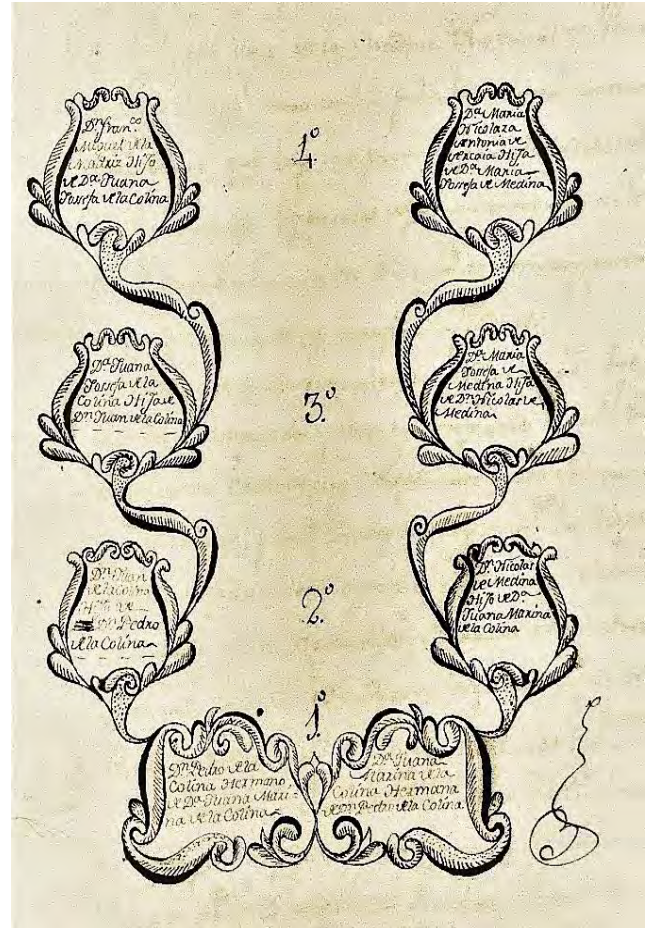 Dn. Fran.co
Miguel de la
Matriz Hijo
de Da. Juana
Josefa de la Colina
4º
Da. Maria
Nicolaza
Antonia de
Arcaia Hija
de Da. Maria
Josefa de Medina
Da. Juana
Josefa de la
Colina Hija de
Dn. Juan de la Colina
3º
Da. Maria
Josefa de
Medina Hija
de Dn. Nicolas de
Medina
Dn. Juan
de la Colina
Hijo de
Dn. Pedro
de la Colina
2º
Dn. Nicolas
de Medina
Hijo de Da.
Juana Marina
de la Colina
1º
Dn. Pedro de la
Colina Hermano
de Da. Juana Mari
na de la Colina
Da. Juana
Marina de la
Colina Hermana
de Dn. Pedro de la Colina